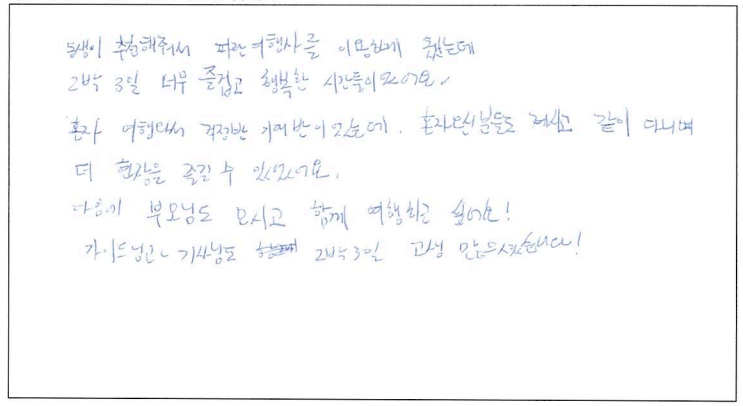 동생이 추천해줘서 파란여행사를 이용하게 됐는데
2박 3일 너무 즐겁고 행복한 시간들이었어요.
혼자 여행와서 걱정반 기대반이었는데, 혼자오신분들도 계시고 같이 다니며
더 현장을 즐길 수 있었어요.
다음에 부모님도 모시고 함께 여행하고 싶어요!
가이드님고, 기사님도 2박3일 고생 많으셨습니다!